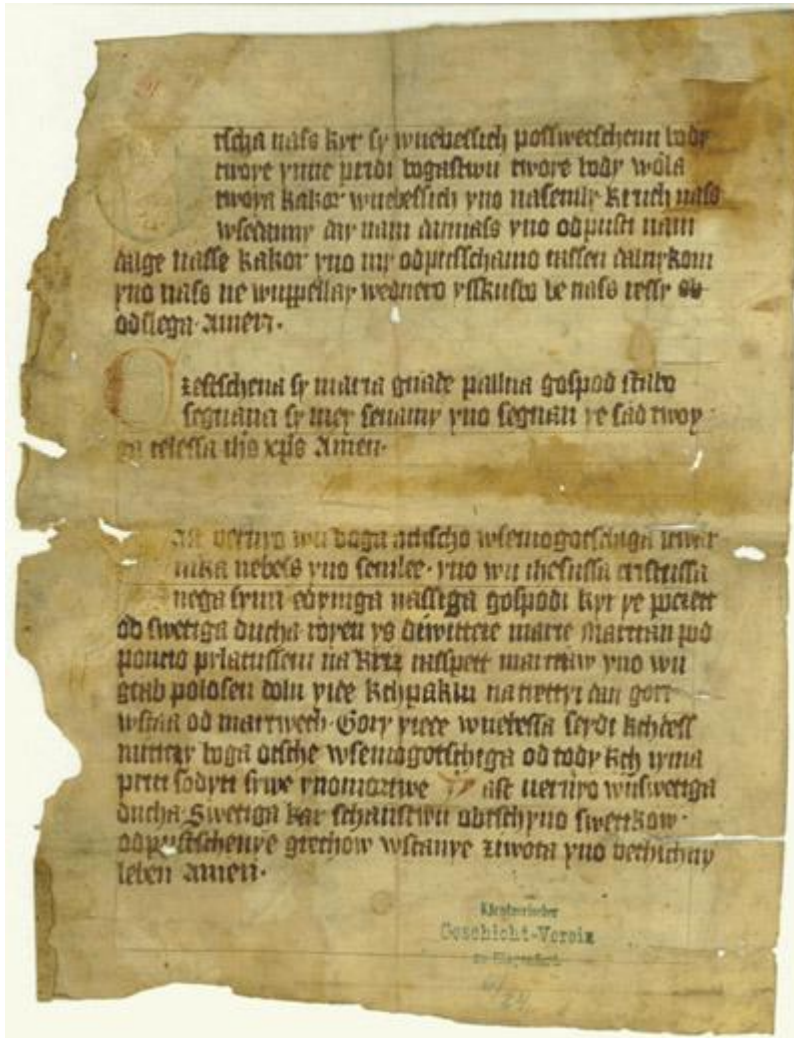 tscha nass kyr sy wnebessich posswetschenu body
twoye ymme pridi bogastwu twore body wola
twoya kakor wnebessich yno nasemly kruch nass
wsedanny day nam dannass yno odpusti nam
dalge nasse kakor yno my odpusschamo nassen dalnykom
yno nass ne wuppellay wednero ysskusbo le nass ressy od
odslega Amen.
Czestschena sy maria gnade pallna gospod stabo
segnana sy mey senamy yno segnan ye sad twoy
ga telessa ihs xps Amen.
ast veruyo wu boga otscho wsemogotschiga stwar
nika nebess yno semlee. yno wu ihesussa cristussa
nega synu edyniga nassiga gospodi kyr ye potzett
od swetiga ducha royen ys dewittete marie martran pod
poncio pylatussem na kriz raspett martaw yno wu
grab polosen dolu yide kchpaklu na trettyi dan gori
wstaa od martwech. Gory yidee wnebessa sedi kchtess
nittzy boga otsche wsemogotschiga od tody kch yma
priti sodytt sywe ynomortwe Jast veruyo wuswetiga
ducha Swetiga kar schanstwu obtschyno swetikow.
odpustschenye grechow wstanye ziwota yno vetchny
leben amen.
Geschicht-Verein